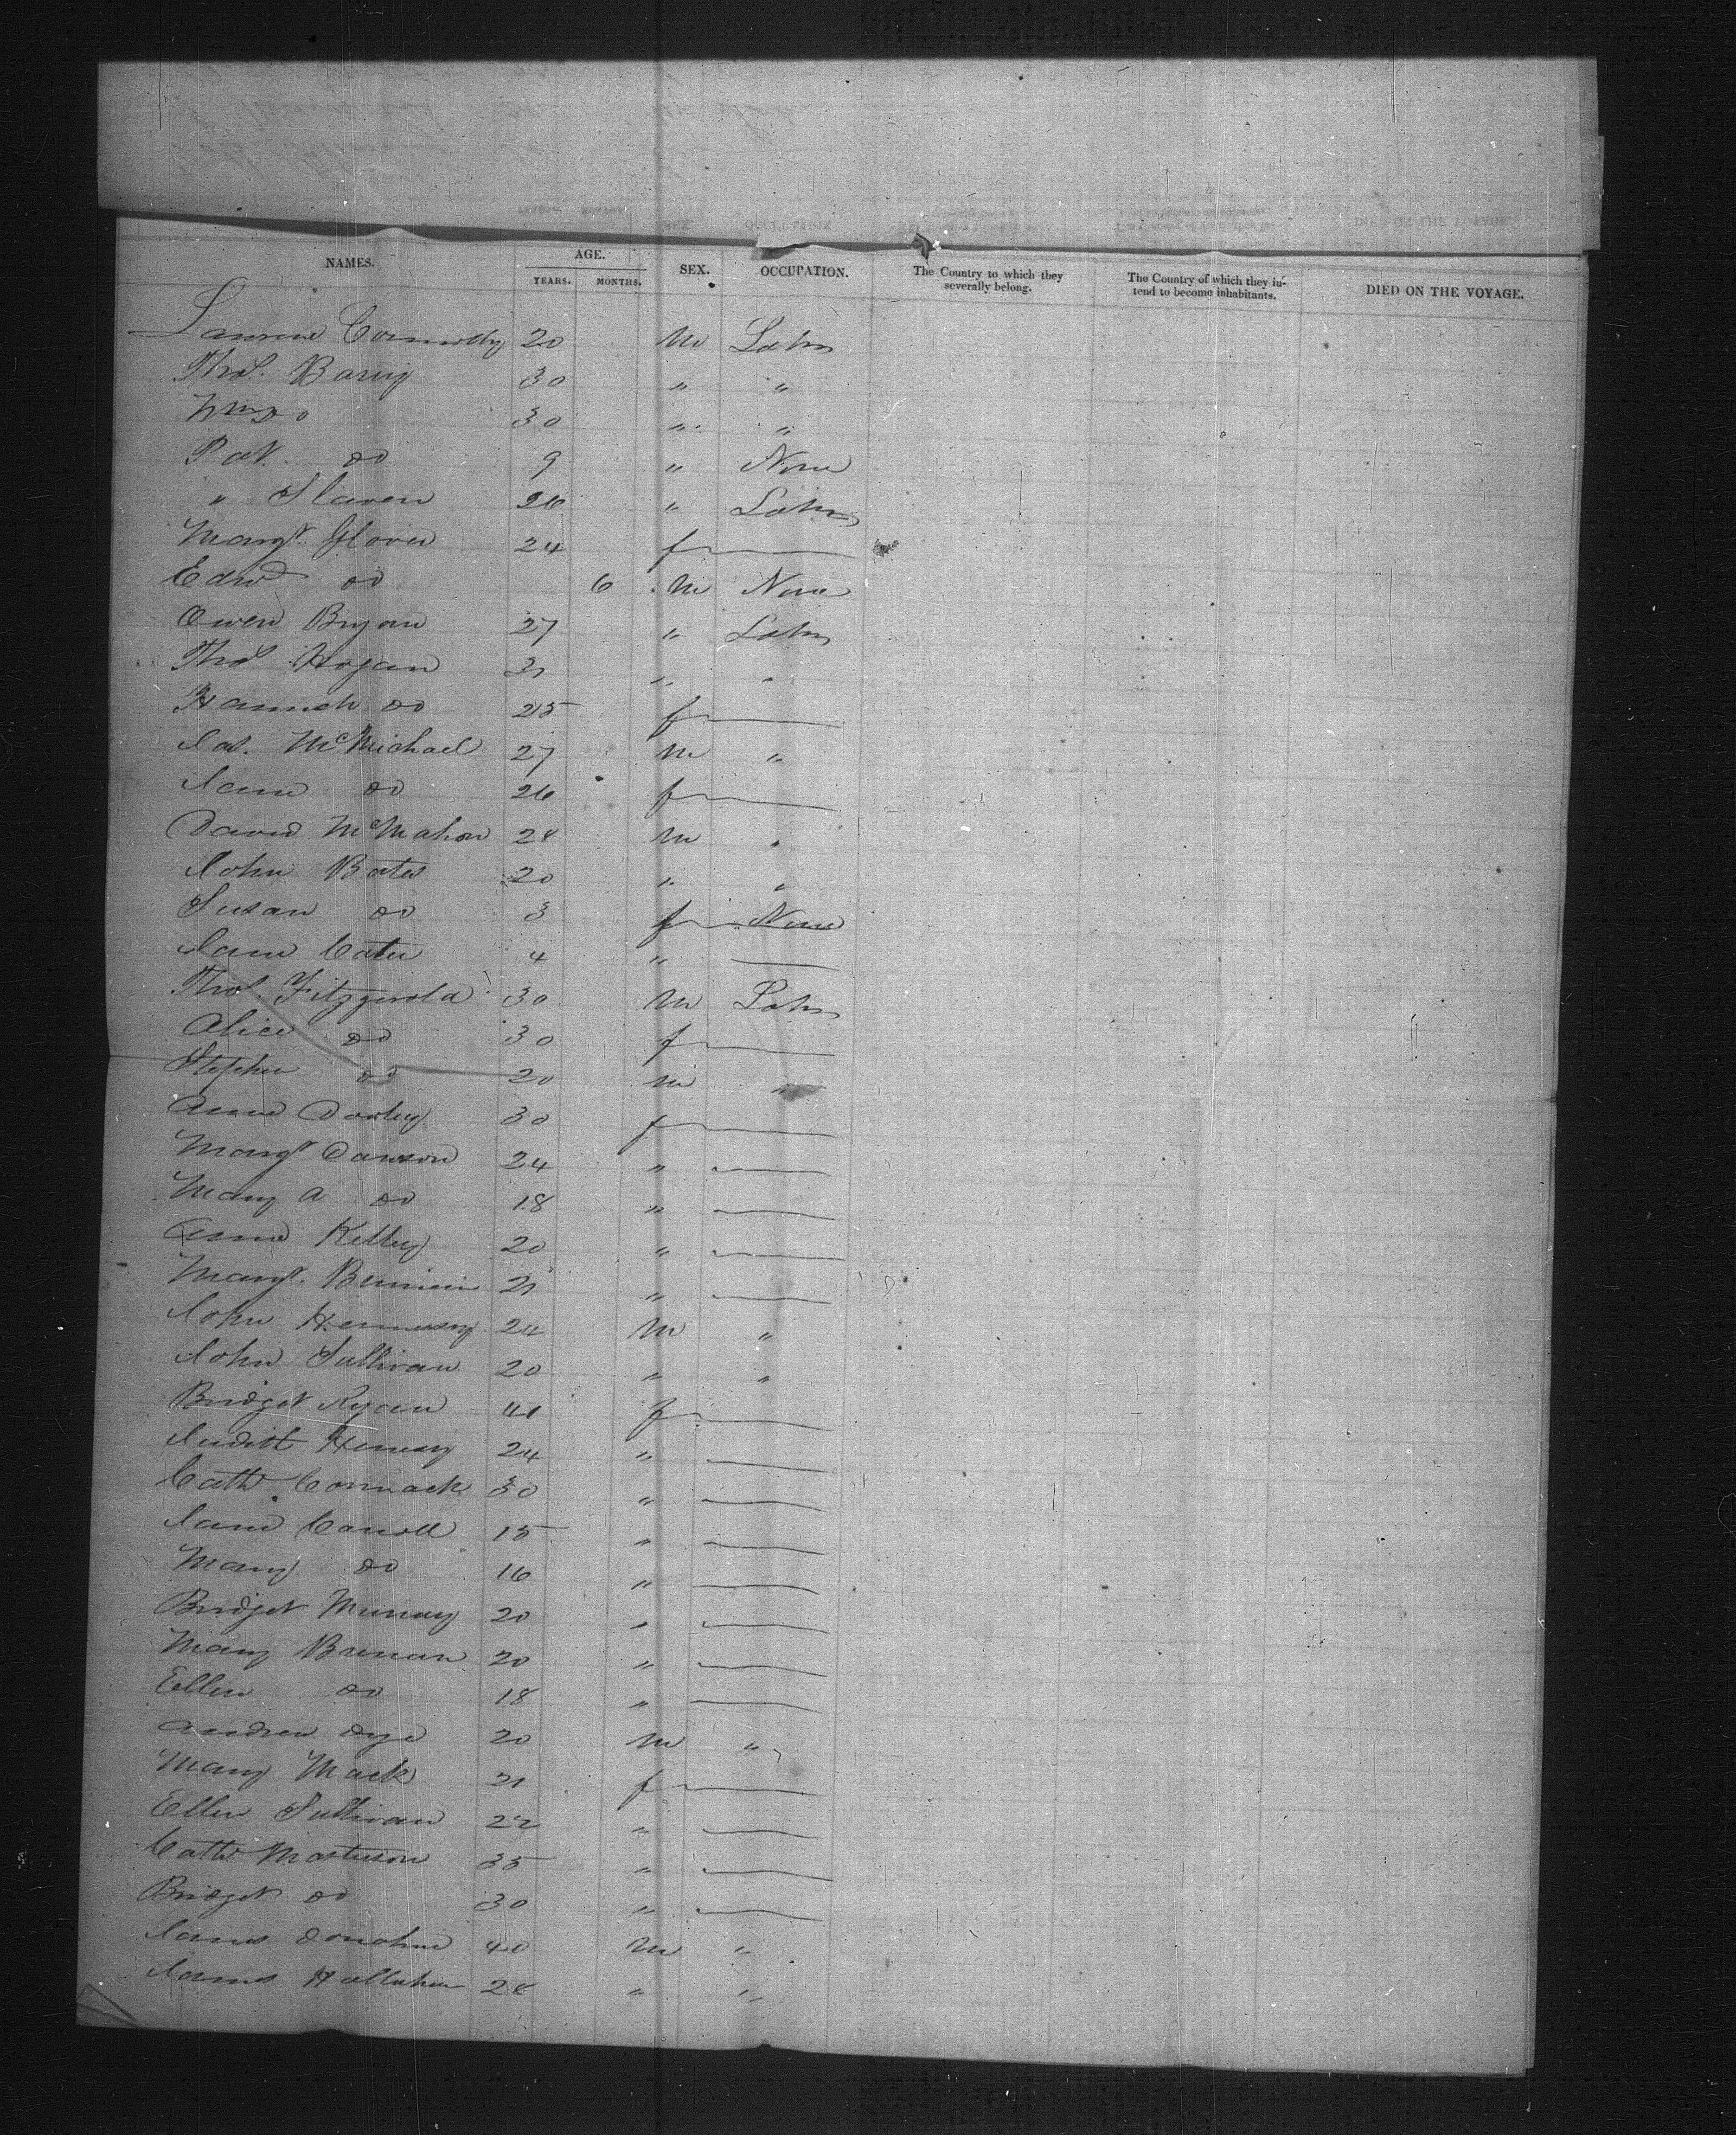 NAMES. AGE. YEARS. MONTHS. SEX. OCCUPATION. The Country to which they severally belong. The Country of which they intend to become inhabitants. DIED ON THE VOYAGE.
Laurence Connolly 20 M Labr
Thos. Barry 30 " "
Wm Do 30 " "
Pat. do 9 " None
" Slaven 26 " Labr
Margt. Glover 24 f
Edwd do 6 M None
Owen Bryan 27 " Labr
Thos Hogan 31 " "
Hannah do 25 f
Jas. McMichael 27 M "
Jane do 26 f
David McMahon 28 M "
John Bates 20 " "
Susan do 3 f None
Jane Cater 4 "
Thos. Fitzgerald 30 M Labr
Alice do 30 f
Stephen do 20 M "
Anne Dooley 30 f
Margt Dawson 24 "
Mary A do 18 "
Anne Kelley 20 "
Margt. 21 "
John Hennessy 24 M "
John Sullivan 20 " "
Bridget Ryan 41 f
Judith 24 "
Cath Cormack 30 "
Jane Carroll 15 "
Mary do 16 "
Bridget Murray 20 "
Mary Brenan 20 "
Ellen do 18 "
Andrew Dye 20 M "
Mary Mack 21 f
Ellen Sullivan 22 "
Cath Masterson 35 "
Bridget do 30 "
James Donohue 40 M "
James 28 " "